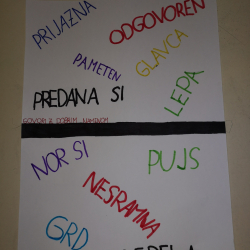 PRIJAZNA
ODGOVOREN
GLAVCA
PAMETEN
LEPA
PREDANA SI
GOVORI Z DOBRIM NAMENOM
NOR SI
PUJS
NESRAMNA
GRD